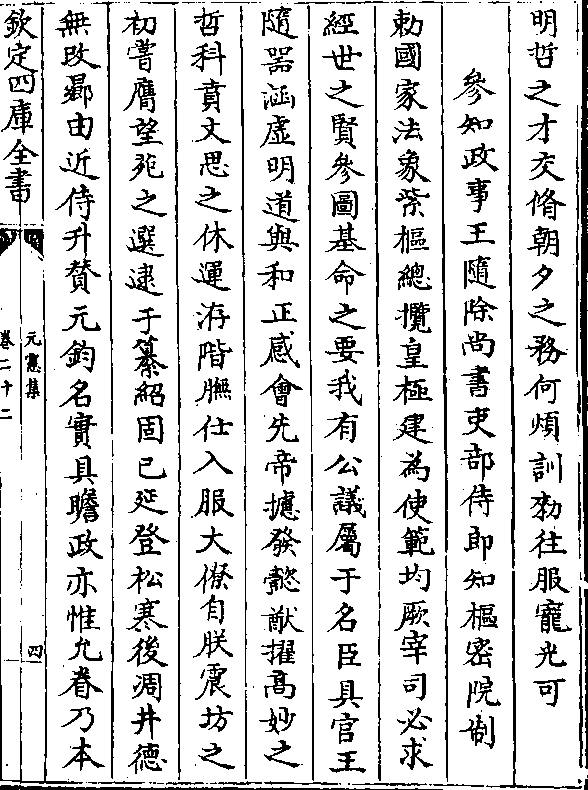 明哲之才交脩朝夕之務何煩訓勑往服寵光可
參知政事王隨除尚書吏部侍郎知樞密院制
勅國家法象紫樞總攬皇極建為使範均厥宰司必求
經世之賢參圖基命之要我有公議屬于名臣具官王
隨器涵虛明道與和正感會先帝攄發懿猷擢高妙之
哲科賁文思之休運洊階膴仕入服大僚自朕震坊之
初嘗膺望苑之選逮于纂紹固已延登松寒後凋井德
無改曏由近侍升賛元鈞名實具瞻政亦惟允眷乃本
欽定四庫全書
元憲集
卷二十二
四